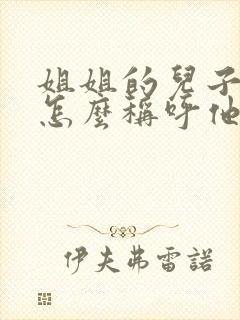 姐姐的兒子
怎麼稱呼他
伊夫弗雷諾